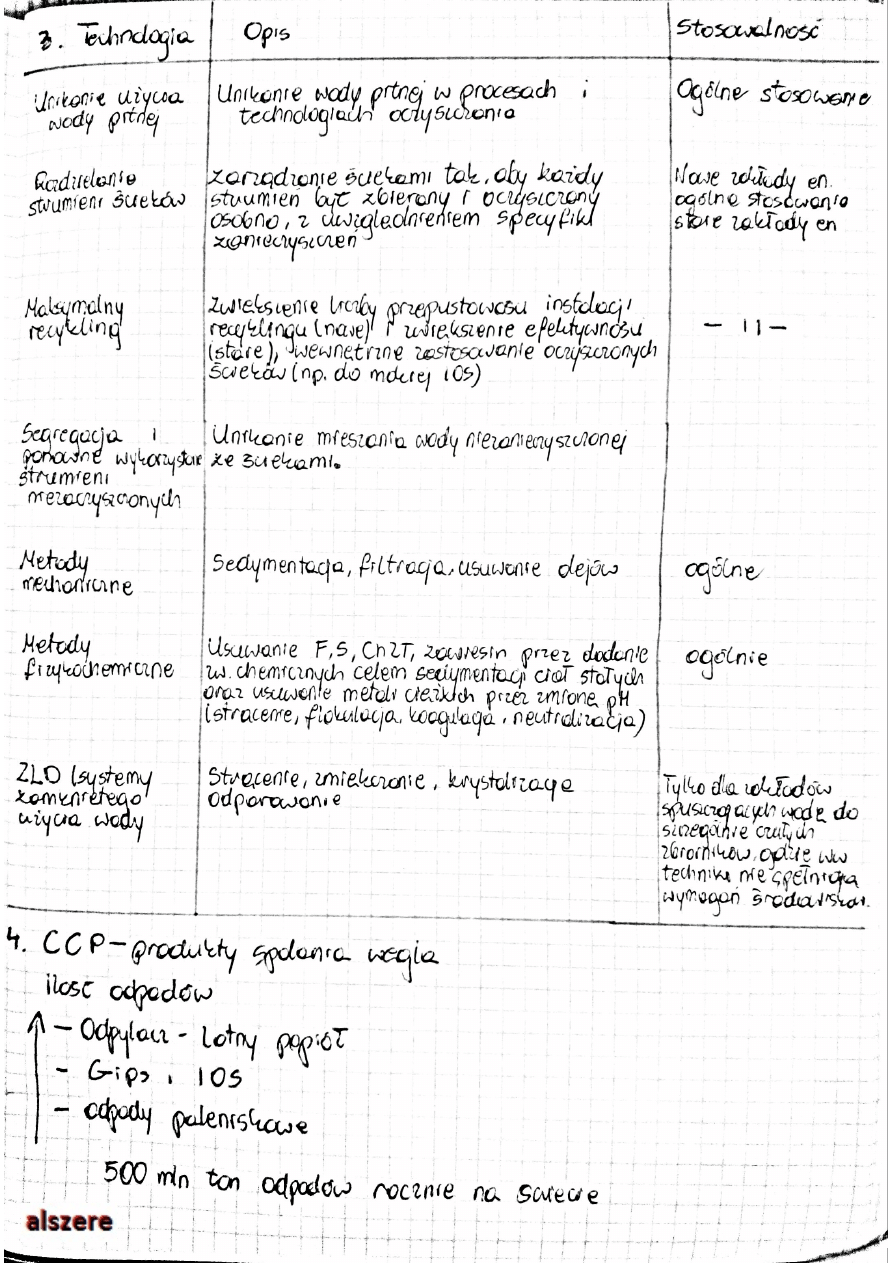 3. Technologia
Opis
Stosowalność
Unikanie użycia
wody pitnej
Unikanie wody pitnej w procesach i
technologiach oczyszczania
Ogólne stosowanie
Rozdzielanie
strumieni ścieków
zarządzanie ściekami tak, aby każdy
strumień był zbierany i oczyszczony
osobno, z uwzględnieniem specyfiki
zanieczyszczeń
Nowe zakłady en.
ogólne stosowanie
stare zakłady en
Maksymalny
recykling
Zwiększenie liczby przepustowości instalacji
recyklingu (nowe) i zwiększenie efektywności
(stare), wewnętrzne zastosowanie oczyszczonych
ścieków (np. do mokrej IOS)
– 11 –
Segregacja i
ponowne wykorzystanie
strumieni
niezaczyszczonych
Unikanie mieszania wody niezanieczyszczonej
ze ściekami.
Metody
mechaniczne
Sedymentacja, filtracja, usuwanie olejów
ogólne
Metody
fizykochemiczne
Usuwanie F, S, ChZT, zawiesin przez dodanie
zw. chemicznych celem sedymentacji ciał stałych
oraz usuwanie metali ciężkich przez zmianę pH
(strącenie, flokulacja, koagulacja, neutralizacja)
ogólnie
ZLD (systemy
zamkniętego
użycia wody
Strącenie, zmiękczanie, krystalizacja
odparowanie
Tylko dla zakładów
spuszczających wodę do
szczególnie czułych
zbiorników, gdzie ww
techniki nie spełniają
wymagań środowiskow.
4. CCP – produkty spalania węgla
ilość odpadów
– Odpylacz – lotny popiół
– Gips, IOS
– odpady paleniskowe
500 mln ton odpadów rocznie na świecie
alszere